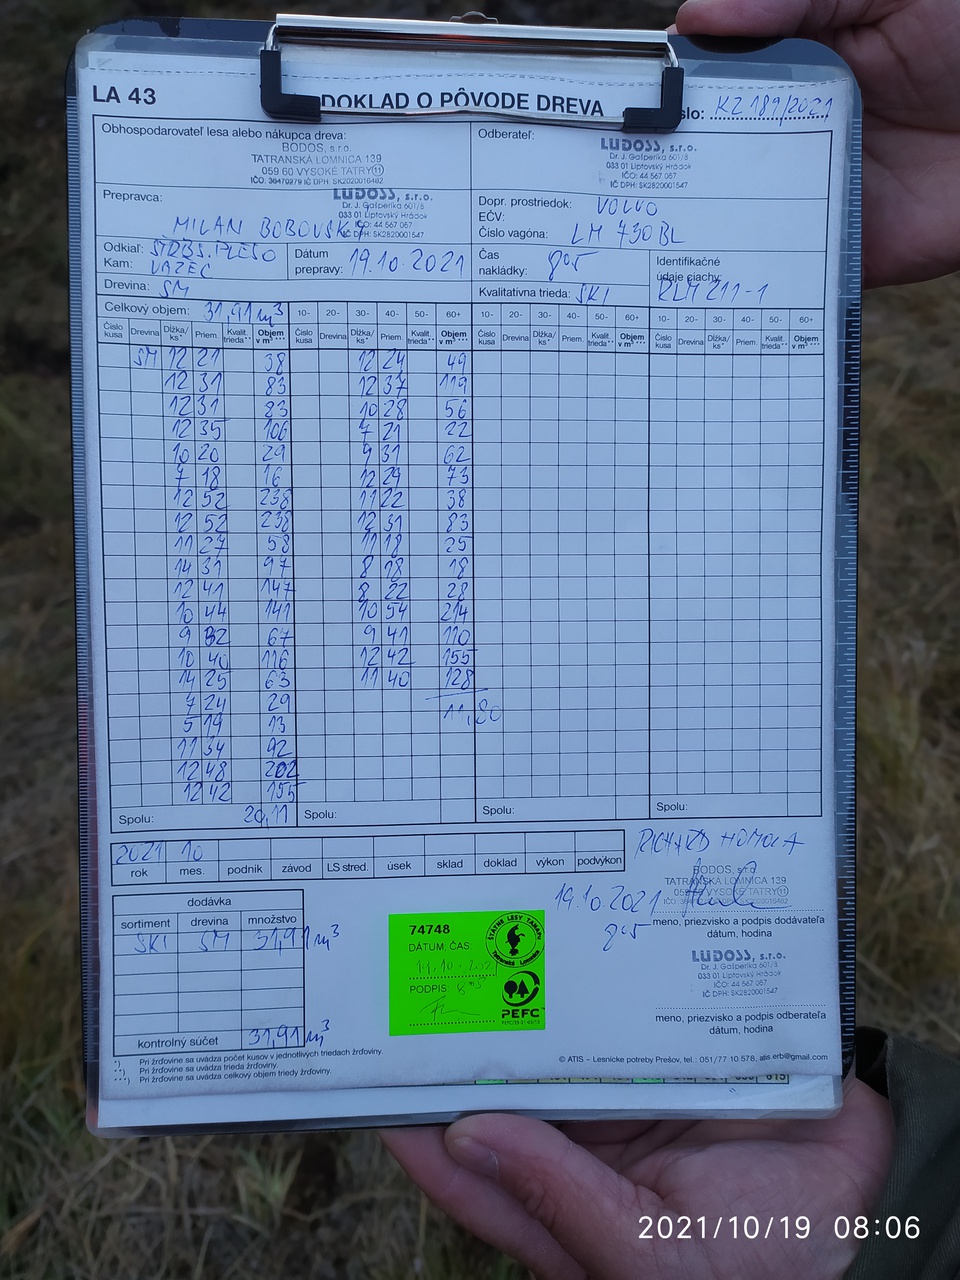 LA 43
DOKLAD O PÔVODE DREVA
slo: KZ 189/2021
Obhospodarovateľ lesa alebo nákupca dreva:
BODOS, s.r.o.
TATRANSKÁ LOMNICA 139
059 60 VYSOKÉ TATRY 11
IČO: 36470279 IČ DPH: SK2020016482
Odberateľ:
LUDOSS, s.r.o.
Dr. J. Gašperíka 601/8
033 01 Liptovský Hrádok
IČO: 44 567 067
IČ DPH: SK2820001547
Prepravca:
LUDOSS, s.r.o.
Dr. J. Gašperíka 601/8
033 01 Liptovský Hrádok
IČO: 44 567 067
IČ DPH: SK2820001547
MILAN BOBOVSKÝ
Dopr. prostriedok: VOLVO
EČV:
Číslo vagóna: LM 730BL
Odkiaľ: ŠTRBS. PLESO
Kam: VAZEC
Dátum prepravy: 19.10.2021
Čas nakládky: 8 05
Identifikačné údaje ciachy: RLM 211-1
Drevina: SM
Kvalitatívna trieda: SKI
Celkový objem: 31,91 m³
10- 20- 30- 40- 50- 60+ 10- 20- 30- 40- 50- 60+ 10- 20- 30- 40- 50- 60+
Číslo kusa Drevina Dĺžka/ks* Priem. Kvalit. trieda** Objem v m³ *** Číslo kusa Drevina Dĺžka/ks* Priem. Kvalit. trieda** Objem v m³ *** Číslo kusa Drevina Dĺžka/ks* Priem. Kvalit. trieda** Objem v m³ *** Číslo kusa Drevina Dĺžka/ks* Priem. Kvalit. trieda** Objem v m³ ***
SM 12 21 38 12 24 49
12 31 83 12 37 119
12 31 83 10 28 56
12 35 106 7 21 22
10 20 29 9 31 62
7 18 16 12 29 73
12 52 238 11 22 38
12 52 238 12 31 83
11 27 58 11 18 25
14 31 97 8 18 18
12 41 147 8 22 28
10 44 141 10 54 214
9 32 67 9 41 110
10 40 116 12 42 155
14 25 63 11 40 128
7 24 29 11,80
5 19 13
11 34 92
12 48 202
12 42 155
Spolu: 20,11 Spolu: Spolu: Spolu:
2021 10
rok mes. podnik závod LS stred. úsek sklad doklad výkon podvýkon
RICHARD HOMOLA
BODOS, s.r.o.
TATRANSKÁ LOMNICA 139
059 60 VYSOKÉ TATRY 11
19.10.2021
8 05
meno, priezvisko a podpis dodávateľa
dátum, hodina
dodávka
sortiment drevina množstvo
SKI SM 31,91 m³
kontrolný súčet 31,91 m³
74748
DÁTUM, ČAS:
PODPIS:
ŠTÁTNE LESY TANAPu
Tatranská Lomnica
PEFC
LUDOSS, s.r.o.
Dr. J. Gašperíka 601/8
033 01 Liptovský Hrádok
IČO: 44 567 067
IČ DPH: SK2820001547
meno, priezvisko a podpis odberateľa
dátum, hodina
*) Pri žrďovine sa uvádza počet kusov v jednotlivých triedach žrďoviny.
**) Pri žrďovine sa uvádza trieda žrďoviny.
***) Pri žrďovine sa uvádza celkový objem triedy žrďoviny.
© ATIS – Lesnícke potreby Prešov, tel.: 051/77 10 578, atis.erb@gmail.com
2021/10/19 08:06